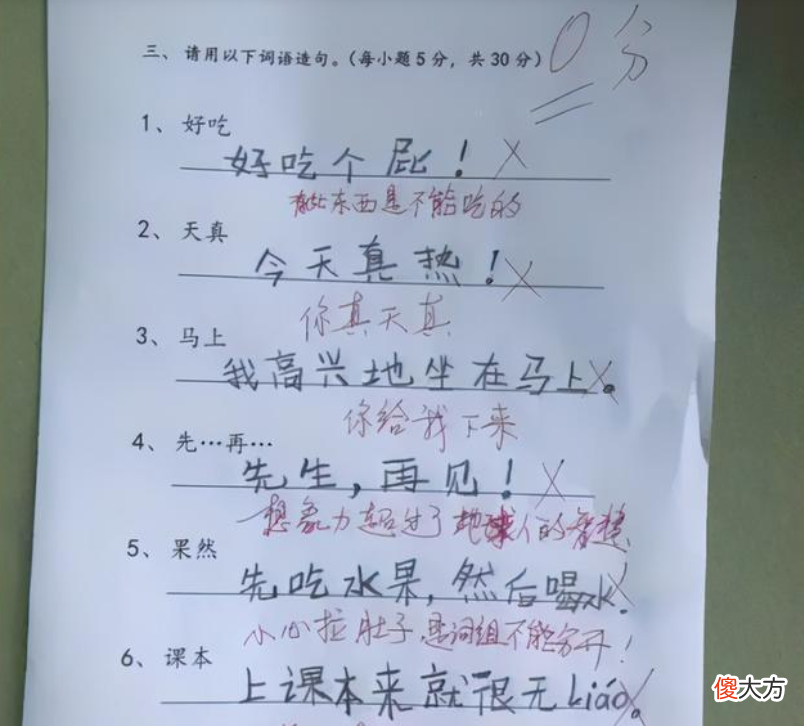 三、请用以下词语造句。(每小题5分，共30分)
0分
1、好吃
好吃个屁！
有些东西是不能吃的
2、天真
今天真热！
你真天真
3、马上
我高兴地坐在马上。
你给我下来
4、先…再…
先生，再见！
想象力超过了地球人的智慧
5、果然
先吃水果，然后喝水。
小心拉肚子，是词组不能分开！
6、课本
上课本来就很无liáo。
傻大方